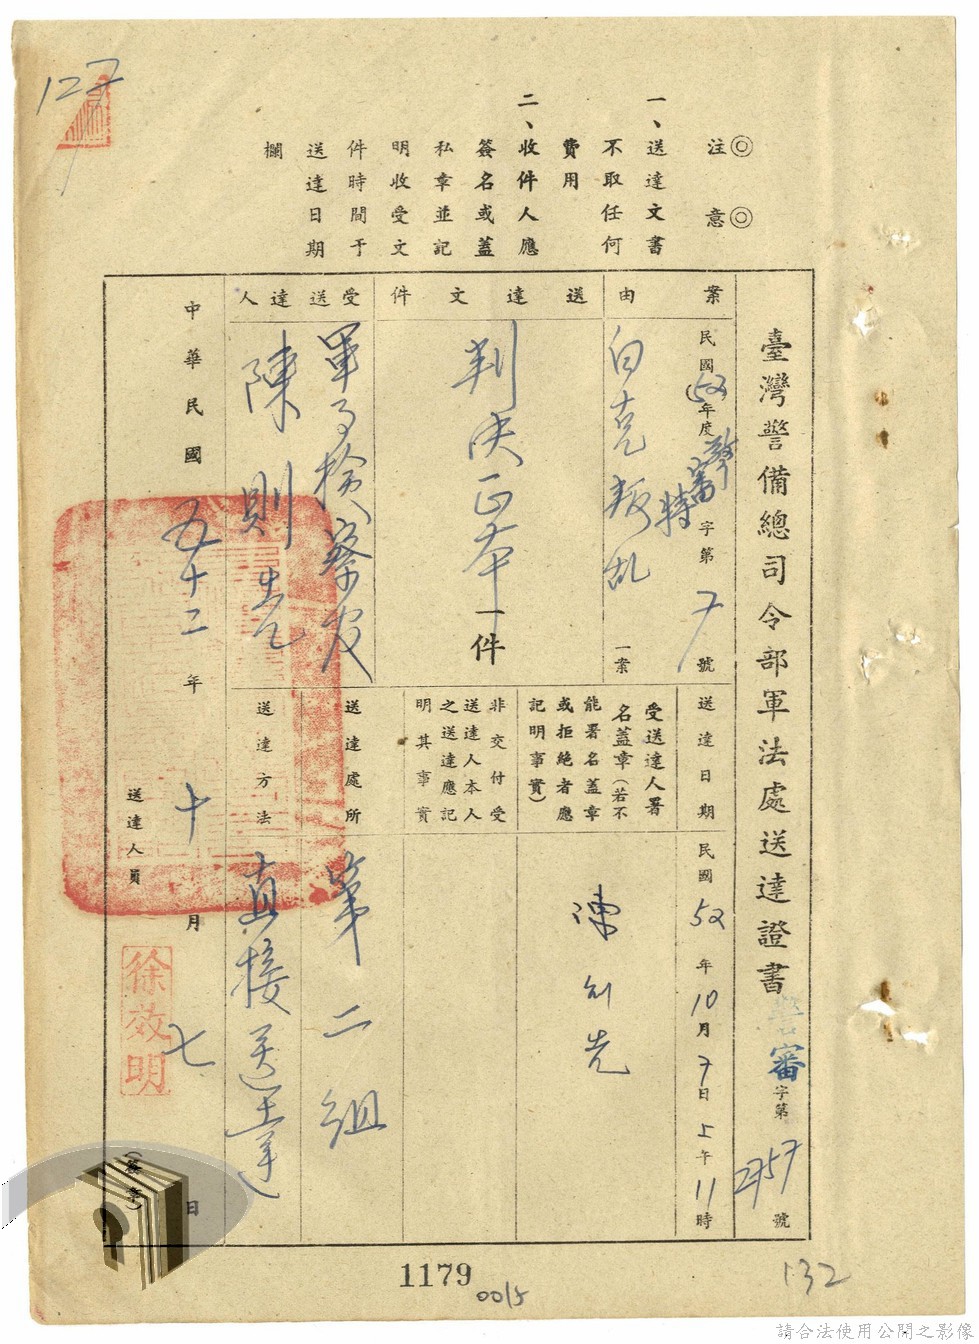 127
◎注意◎
一、送達文書
不取任何
費用
二、收件人應
簽名或蓋
私章並記
明收受文
件時間予
送達日期
欄
臺灣警備總司令部軍法處送達證書
警審字第2757號
案由
民國52年度警審特字第7號
白克叛乱一案
送達文件
判決正本一件
受送達人
軍事檢察官
陳則先
送達日期
民國52年10月7日上午11時
受送達人署
名蓋章(若不
能署名蓋章
或拒絕者應
記明事實)
陳則先
非交付受
送達人本人
之送達應記
明其事實
送達處所
第二組
送達方法
直接送達
中華民國五十二年十月七日
送達人員
徐效明
(簽章)
1179
0015
132
請合法使用公開之影像